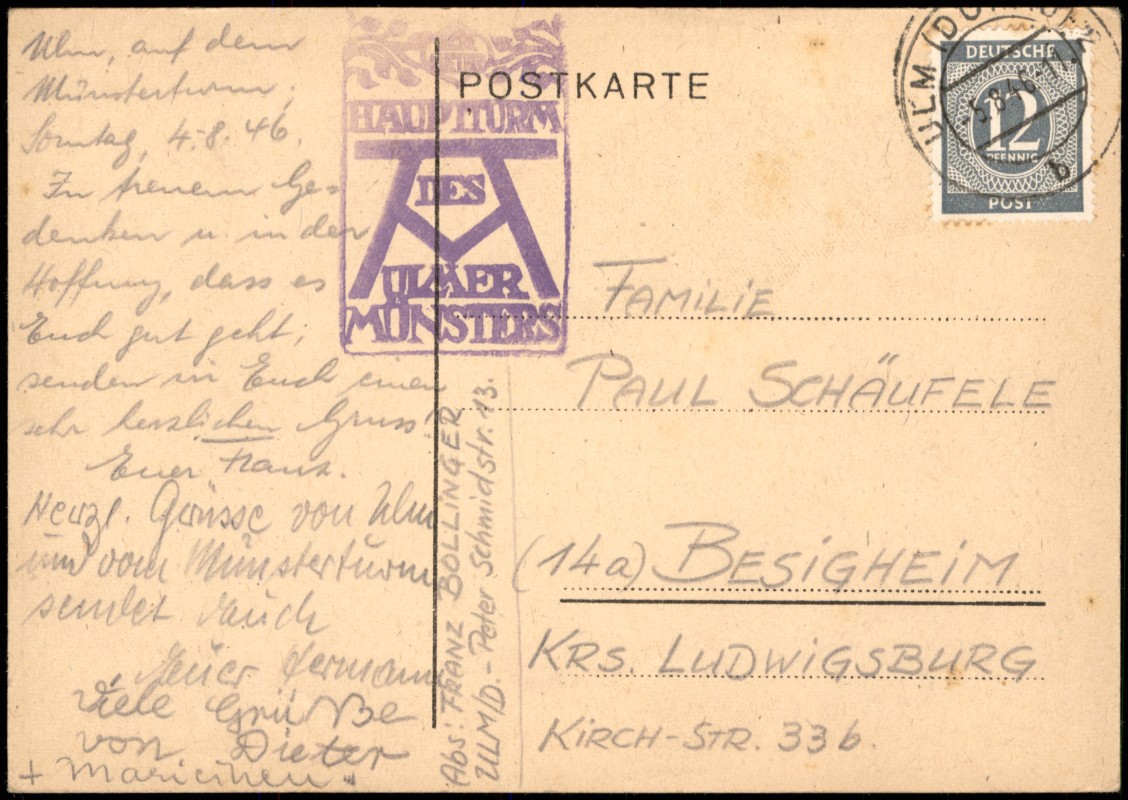 Ulm, auf dem
Münsterturm,
Sonntag, 4.8.46.
In treuem Ge-
denken u. in der
Hoffnung, dass es
Euch gut geht,
senden wir Euch einen
sehr herzlichen Gruss!
Euer Franz.
Herzl. Grüsse von Ulm
und vom Münsterturm
sendet Euch
Euer Hermann
Viele Grüße
von Dieter
+ Mariechen.
HAUPTTURM
DES
ULMER
MÜNSTERS
POSTKARTE
ULM (DONAU)
5.8.46
b
DEUTSCHE
12
PFENNIG
POST
Abs: FRANZ BOLLINGER
ULM/D.-Peter Schmidstr. 13.
FAMILIE
PAUL SCHÄUFELE
(14a) BESIGHEIM
KRS. LUDWIGSBURG
KIRCH-STR. 33b.